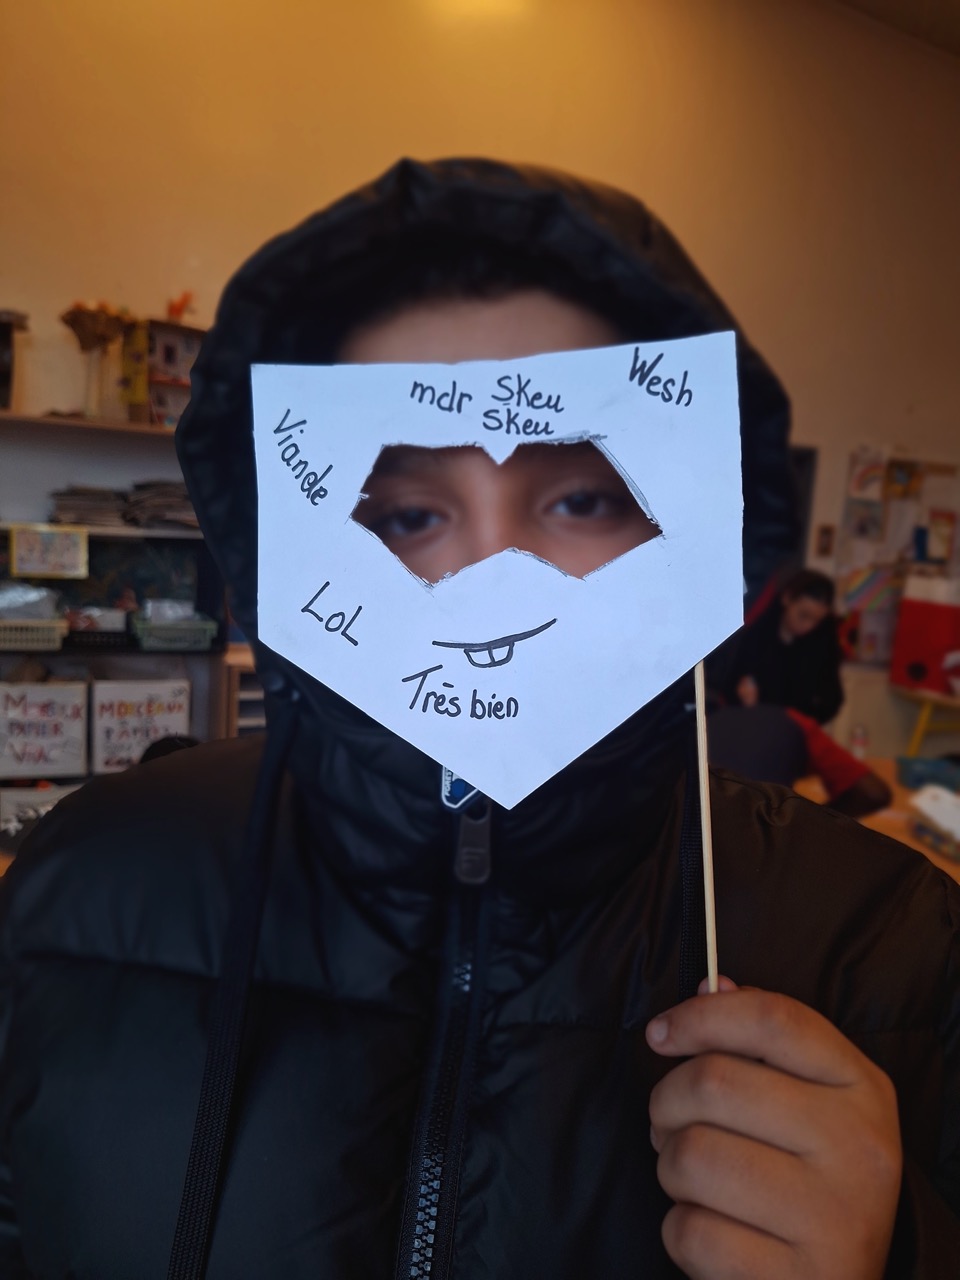 mdr Skeu
Skeu
Wesh
Viande
LoL
Très bien
PAPIER
MORCEAUX
PAPIER